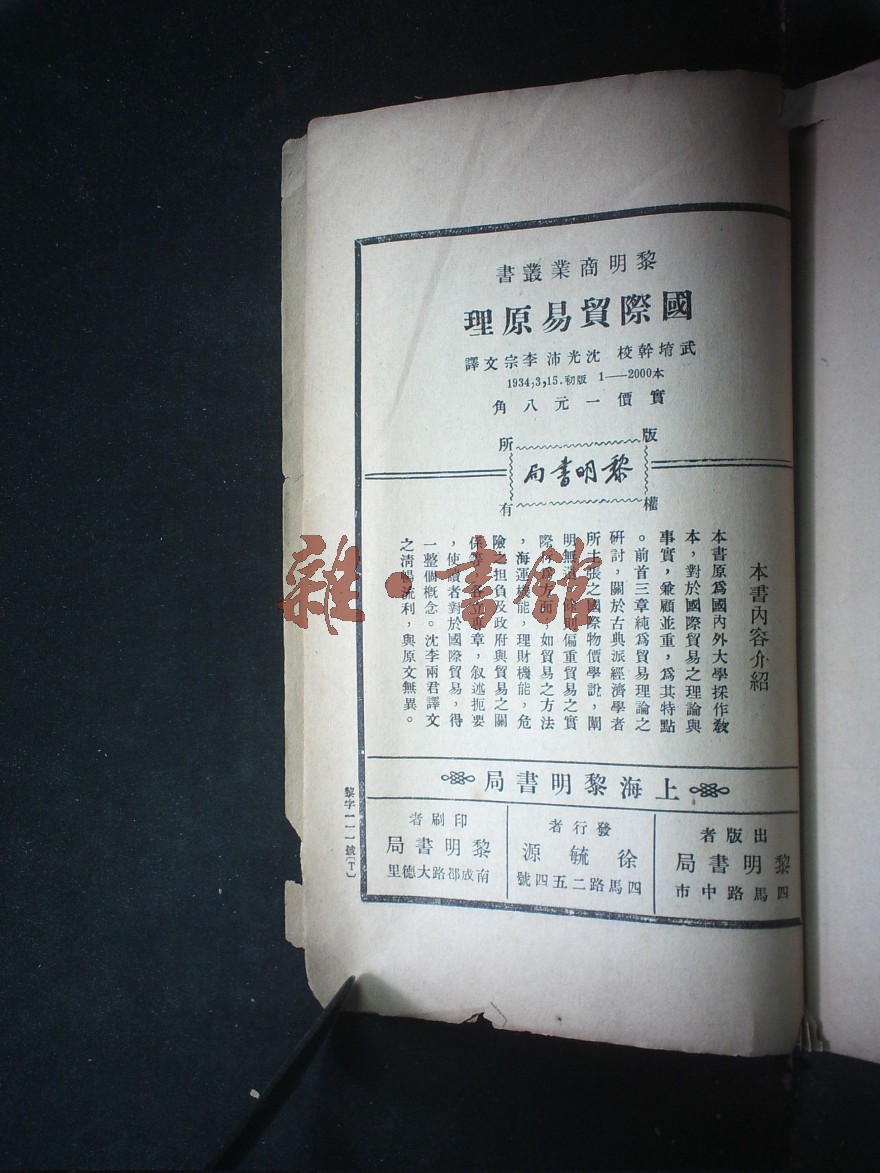 黎明商業叢書
國際貿易原理
武堉幹校 沈光沛 李宗文譯
1934,3,15.初版 1——2000本
實價一元八角
版權所有
黎明書局
本書內容介紹
本書原爲國內外大學採作敎
本，對於國際貿易之理論與
事實，兼顧並重，爲其特點
。前首三章純爲貿易理論之
研討，關於古典派經濟學者
所主張之國際物價學說，闡
明無遺，餘則偏重貿易之實
際 方面，如貿易之方法
，海運機能，理財機能，危
險之担負及政府與貿易之關
係等， 專章，叙述扼要
，使讀者對於國際貿易，得
一整個概念。沈李兩君譯文
之清暢流利，與原文無異。
上海黎明書局
出版者
黎明書局
四馬路中市
發行者
徐毓源
四馬路二五四號
印刷者
黎明書局
南成都路大德里
黎字一一一號(T)
雜·書館